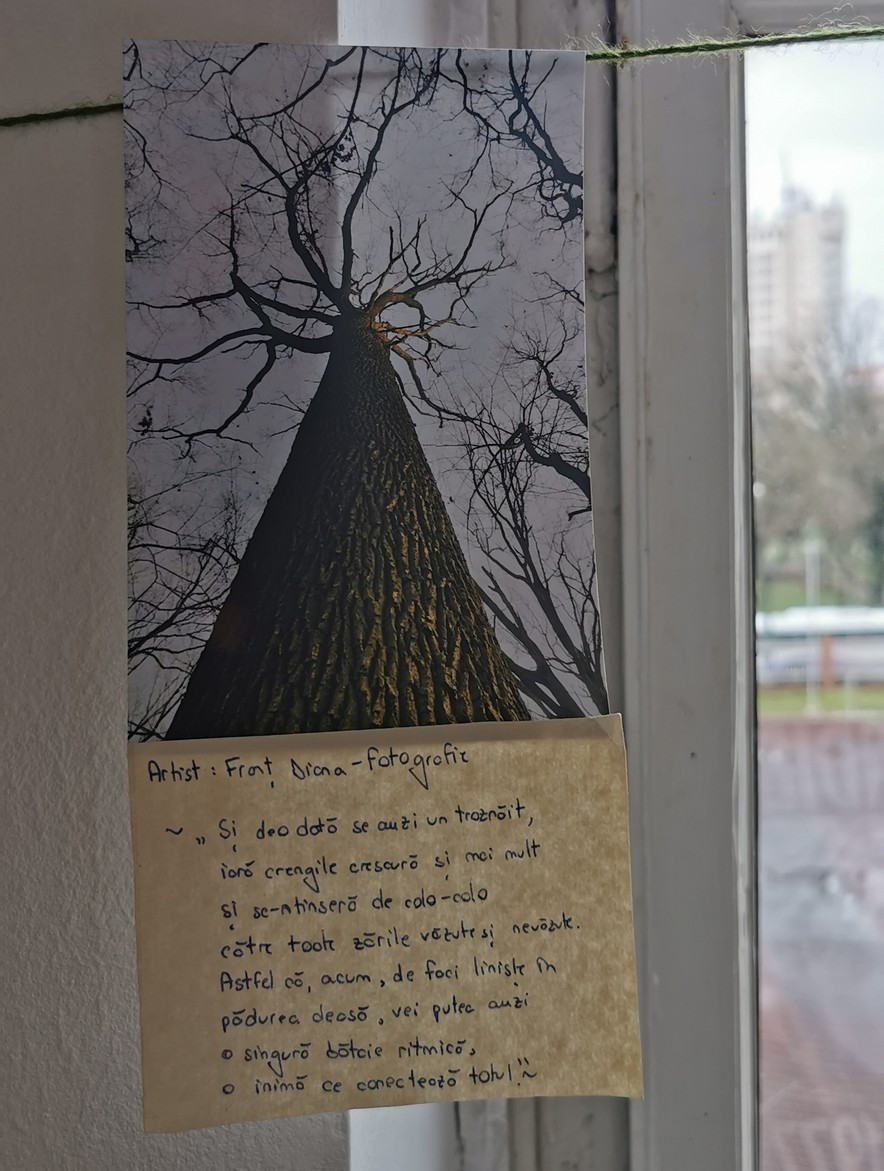 Artist : Fronț Diana - fotografie
~ „ Și deo dată se auzi un troznăit,
iară crengile crescură și mai mult
și se-ntinseră de colo-colo
către toate zările văzute și nevăzute.
Astfel că, acum, de faci liniște în
pădurea deasă, vei putea auzi
o singură bătaie ritmică,
o inimă ce conectează totul! " ~